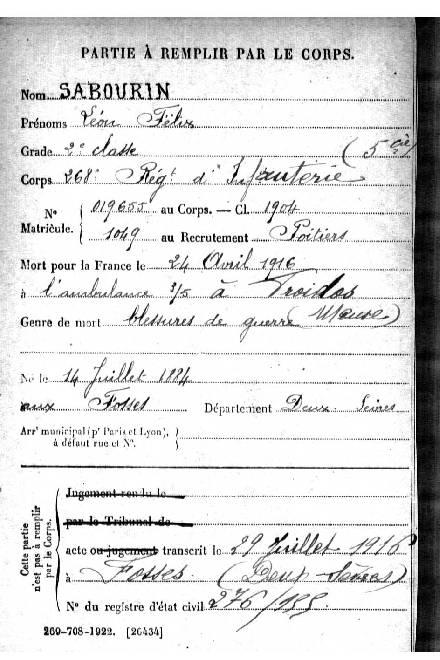 PARTIE À REMPLIR PAR LE CORPS.
Nom SABOURIN
Prénoms Léon Félix
Grade 2e classe (5e Cie)
Corps 268e Régt d'Infanterie
No Matricule. 019655 au Corps. — Cl. 1904
1049 au Recrutement Poitiers
Mort pour la France le 24 Avril 1916
à l'ambulance 3/5 à Froidos
Genre de mort blessures de guerre (Meuse)
Né le 14 Juillet 1884
aux Fosses Département Deux Sèvres
Arrt municipal (pr Paris et Lyon),
à défaut rue et No.
Cette partie n'est pas à remplir par le Corps.
Jugement rendu le
par le Tribunal de
acte ou jugement transcrit le 29 Juillet 1916
à Fosses (Deux-Sèvres)
No du registre d'état civil 276/185
260-708-1922. [26434]